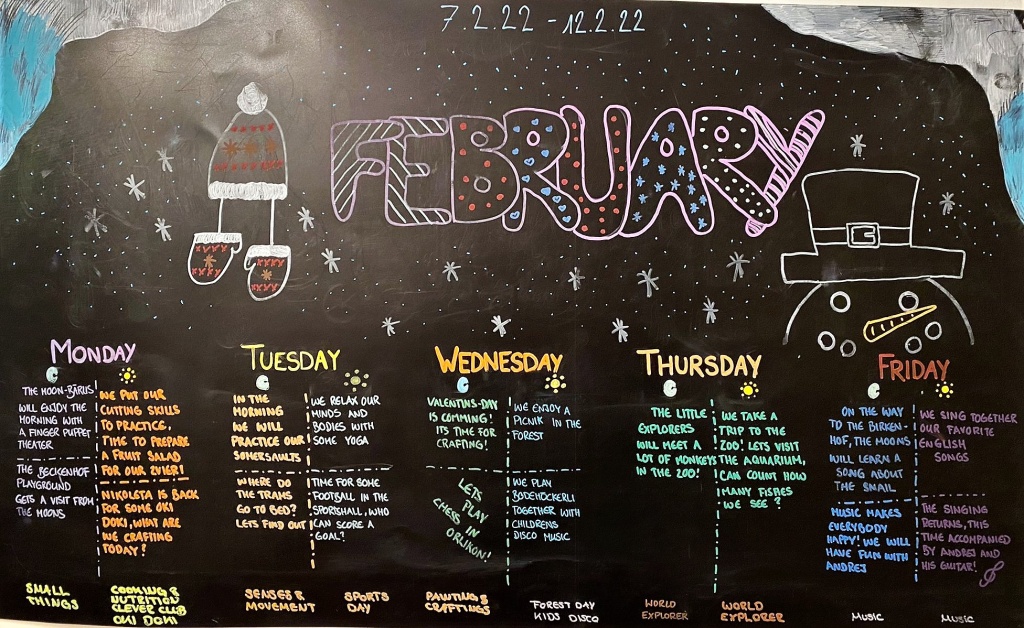 7.2.22 - 12.2.22
FEBRUARY
MONDAY
THE MOON-BÄRLIS
WILL ENJOY THE
MORNING WITH
A FINGER PUPPET
THEATER
THE BECKENHOF
PLAYGROUND
GETS A VISIT FROM
THE MOONS
WE PUT OUR
CUTTING SKILLS
TO PRACTICE,
TIME TO PREPARE
A FRUIT SALAD
FOR OUR ZVIERI!
NIKOLETA IS BACK
FOR SOME OKI
DOKI, WHAT ARE
WE CRAFTING
TODAY?
TUESDAY
IN THE
MORNING
WE WILL
PRACTICE OUR
SOMERSAULTS
WHERE DO
THE TRAMS
GO TO BED?
LETS FIND OUT!
WE RELAX OUR
MINDS AND
BODIES WITH
SOME YOGA
TIME FOR SOME
FOOTBALL IN THE
SPORTSHALL, WHO
CAN SCORE A
GOAL?
WEDNESDAY
VALENTINS-DAY
IS COMMING!
ITS TIME FOR
CRAFTING!
LETS
PLAY
CHESS IN
ORLIKON!
WE ENJOY A
PICNIK IN THE
FOREST
WE PLAY
BODEHÖCKERLI
TOGETHER WITH
CHILDRENS
DISCO MUSIC
THURSDAY
THE LITTLE
EXPLORERS
WILL MEET A
LOT OF MONKEYS
IN THE ZOO!
WE TAKE A
TRIP TO THE
ZOO! LETS VISIT
THE AQUARIUM,
CAN COUNT HOW
MANY FISHES
WE SEE?
FRIDAY
ON THE WAY
TO THE BIRKEN-
HOF, THE MOONS
WILL LEARN A
SONG ABOUT
THE SNAIL
MUSIC MAKES
EVERYBODY
HAPPY! WE WILL
HAVE FUN WITH
ANDREJ
WE SING TOGETHER
OUR FAVORITE
ENGLISH
SONGS
THE SINGING
RETURNS, THIS
TIME ACCOMPANIED
BY ANDREJ AND
HIS GUITAR!
SMALL
THINGS
COOKING &
NUTRITION
CLEVER CLUB
OKI DOKI
SENSES &
MOVEMENT
SPORTS
DAY
PAINTING &
CRAFTINGS
FOREST DAY
KIDS DISCO
WORLD
EXPLORER
WORLD
EXPLORER
MUSIC
MUSIC